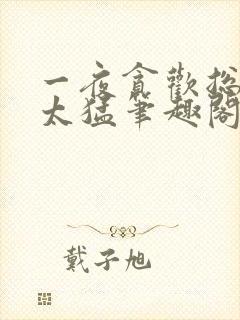 一夜贪欢总
太猛笔趣阁
戴子旭